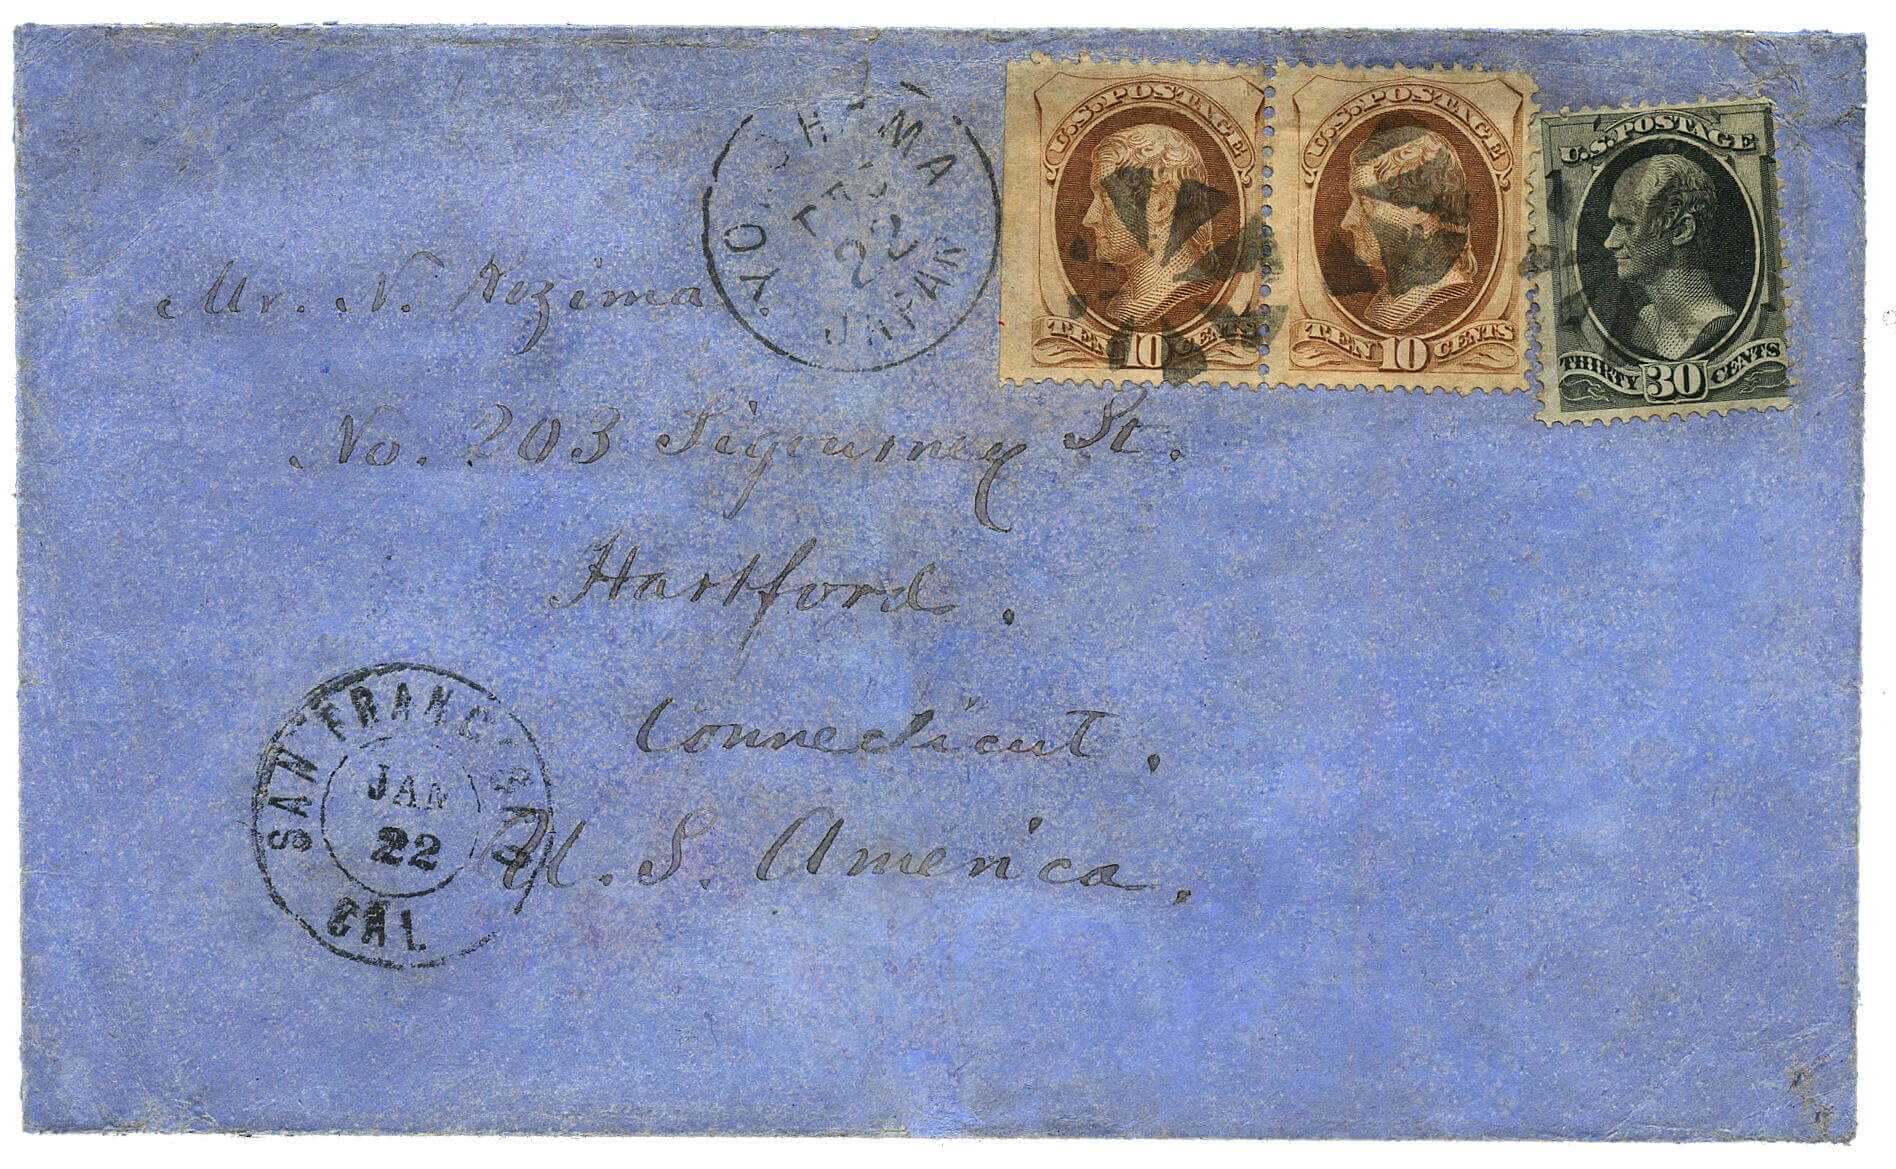 YOKOHAMA
22
JAPAN
U.S. POSTAGE
TEN 10 CENTS
U.S. POSTAGE
TEN 10 CENTS
U.S. POSTAGE
THIRTY 30 CENTS
Mr. N. Nozima
No. 203 Sigourney St.
Hartford.
Connecticut.
U. S. America.
SAN FRANCISCO
JAN
22
CAL